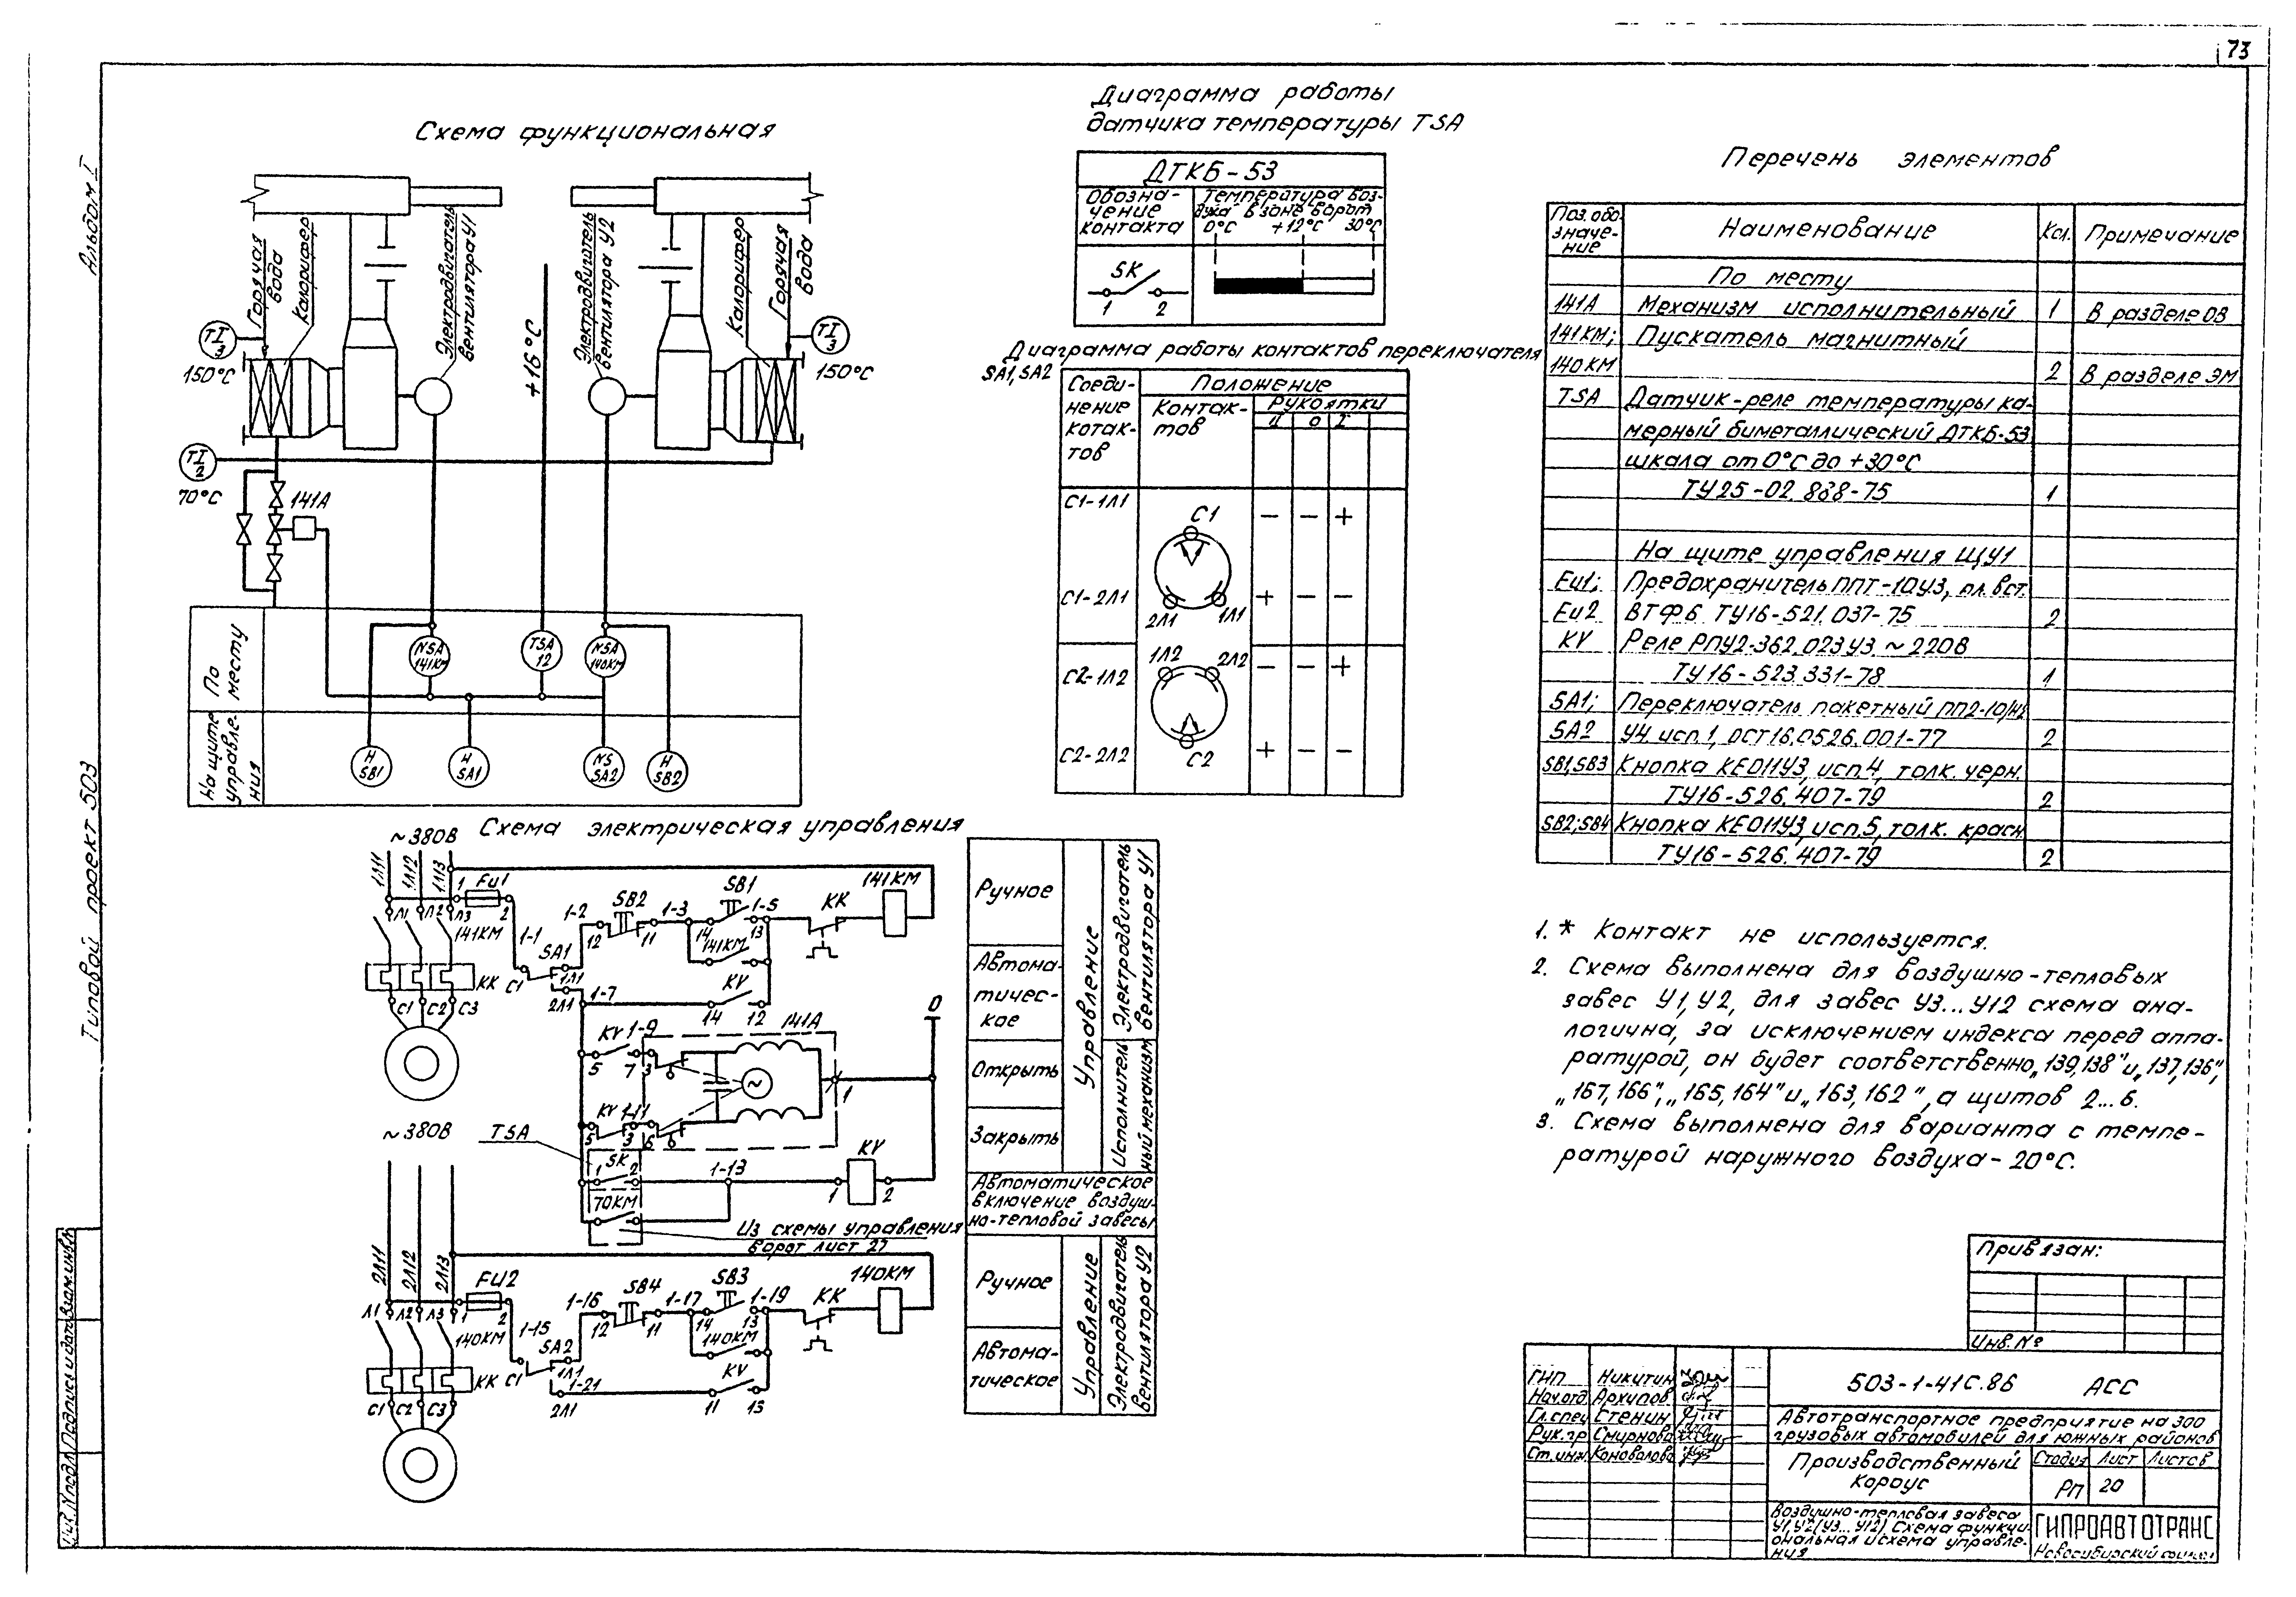 73
Альбом I
Типовой проект 503
Схема функциональная
Горячая вода
Калорифер
Электродвигатель вентилятора У1
+16°С
Электродвигатель вентилятора У2
Калорифер
Горячая вода
TI 3
150°С
TI 3
150°С
TI 2
70°С
141А
По месту
NSA 141КМ
TSA 12
NSA 140КМ
На щите управления
H SB1
H SA1
NS SA2
H SB2
Диаграмма работы
датчика температуры TSA
ДТКБ-53
Обозна-
чение
контакта
Температура воз-
духа в зоне ворот
0°С +12°С 30°С
SK
1 2
Диаграмма работы контактов переключателя
SA1, SA2
Соеди-
нение
котак-
тов
Положение
Контак-
тов
Рукоятки
С1-1Л1
С1
– – +
С1-2Л1
2Л1 1Л1
+ – –
С2-1Л2
1Л2 2Л2
– – +
С2-2Л2
С2
+ – –
Перечень элементов
Поз. обо-
значе-
ние
Наименование
Кол.
Примечание
По месту
141А Механизм исполнительный 1 В разделе ОВ
141КМ; Пускатель магнитный
140КМ 2 В разделе ЭМ
TSA Датчик-реле температуры ка-
мерный биметаллический ДТКБ-53
шкала от 0°С до +30°С
ТУ25-02.888-75 1
На щите управления ЩУ1
Fu1; Предохранитель ППТ-10У3, пл. вст.
Fu2 ВТФ6 ТУ16-521.037-75 2
KV Реле РПУ2-362.023У3 ~220В
ТУ16-523.331-78 1
SA1; Переключатель пакетный ПП2-10/Н2
SA2 У4 исп.1, ОСТ16.0526.001-77 2
SB1,SB3 Кнопка КЕ011У3, исп.4, толк. черн.
ТУ16-526.407-79 2
SB2;SB4 Кнопка КЕ011У3, исп.5, толк. красн
ТУ16-526.407-79 2
1.* Контакт не используется.
2. Схема выполнена для воздушно-тепловых
завес У1, У2, для завес У3...У12 схема ана-
логична, за исключением индекса перед аппа-
ратурой, он будет соответственно „139,138" и „137,136",
„167,166", „165,164" и „163,162", а щитов 2...6.
3. Схема выполнена для варианта с темпе-
ратурой наружного воздуха -20°С.
Схема электрическая управления
~380В
1Л11 1Л12 1Л13
1 Fu1 2
Л1 Л2 Л3
141КМ
1-1
SA1
С1
1Л1
2Л1
1-2
SB2
12 11
1-3
SB1
14 13
1-5
141КМ
KK
141КМ
KK
С1 С2 С3
1-7
KV
14 12
0
KV 1-9
5 7 3
141А
~
1
KV 1-11
5 3 6
TSA
SK
1 2
1-13
KV
1 2
70КМ
Из схемы управления
ворот лист 27
~380В
2Л11 2Л12 2Л13
Fu2
Л1 Л2 Л3 1 2
140КМ
1-15
SA2
С1
1Л1
2Л1
1-16
SB4
12 11
1-17
SB3
14 13
1-19
140КМ
KK
140КМ
KK
С1 С2 С3
1-21
KV
11 13
Ручное
Автома-
тичес-
кое
Управление
Электродвигатель
вентилятора У1
Открыть
Закрыть
Исполнитель-
ный механизм
Автоматическое
включение воздуш-
но-тепловой завесы
Ручное
Автома-
тическое
Управление
Электродвигатель
вентилятора У2
Привязан:
Инв. №
ГИП Никитин
Нач.отд Архипов
Гл.спец Стенин
Рук.гр Смирнова
Ст.инж Коновалова
503-1-41С.86 АСС
Автотранспортное предприятие на 300
грузовых автомобилей для южных районов
Производственный
корпус
Стадия Лист Листов
РП 20
Воздушно-тепловая завеса
У1,У2(У3...У12). Схема функци-
ональная и схема управле-
ния
ГИПРОАВТОТРАНС
Новосибирский филиал
Инв.№подл. Подпись и дата Взам.инв.№